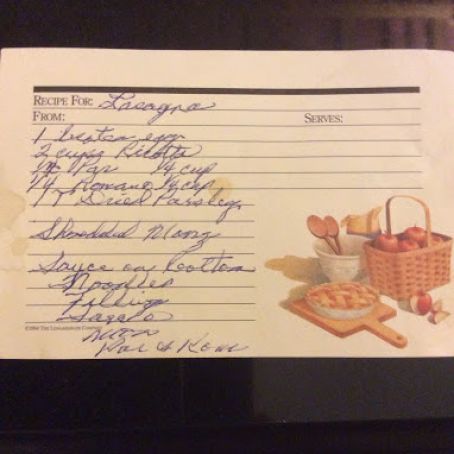 RECIPE FOR: Lasagna
FROM: SERVES:
1 beaten egg
2 cups Ricotta
1/4 Par 1/4 cup
1/4 Romano 1/4 cup
1 T Dried Parsley
Shredded Mozz
Sauce on bottom
Noodles
Filling
Mozz
Par & Rom